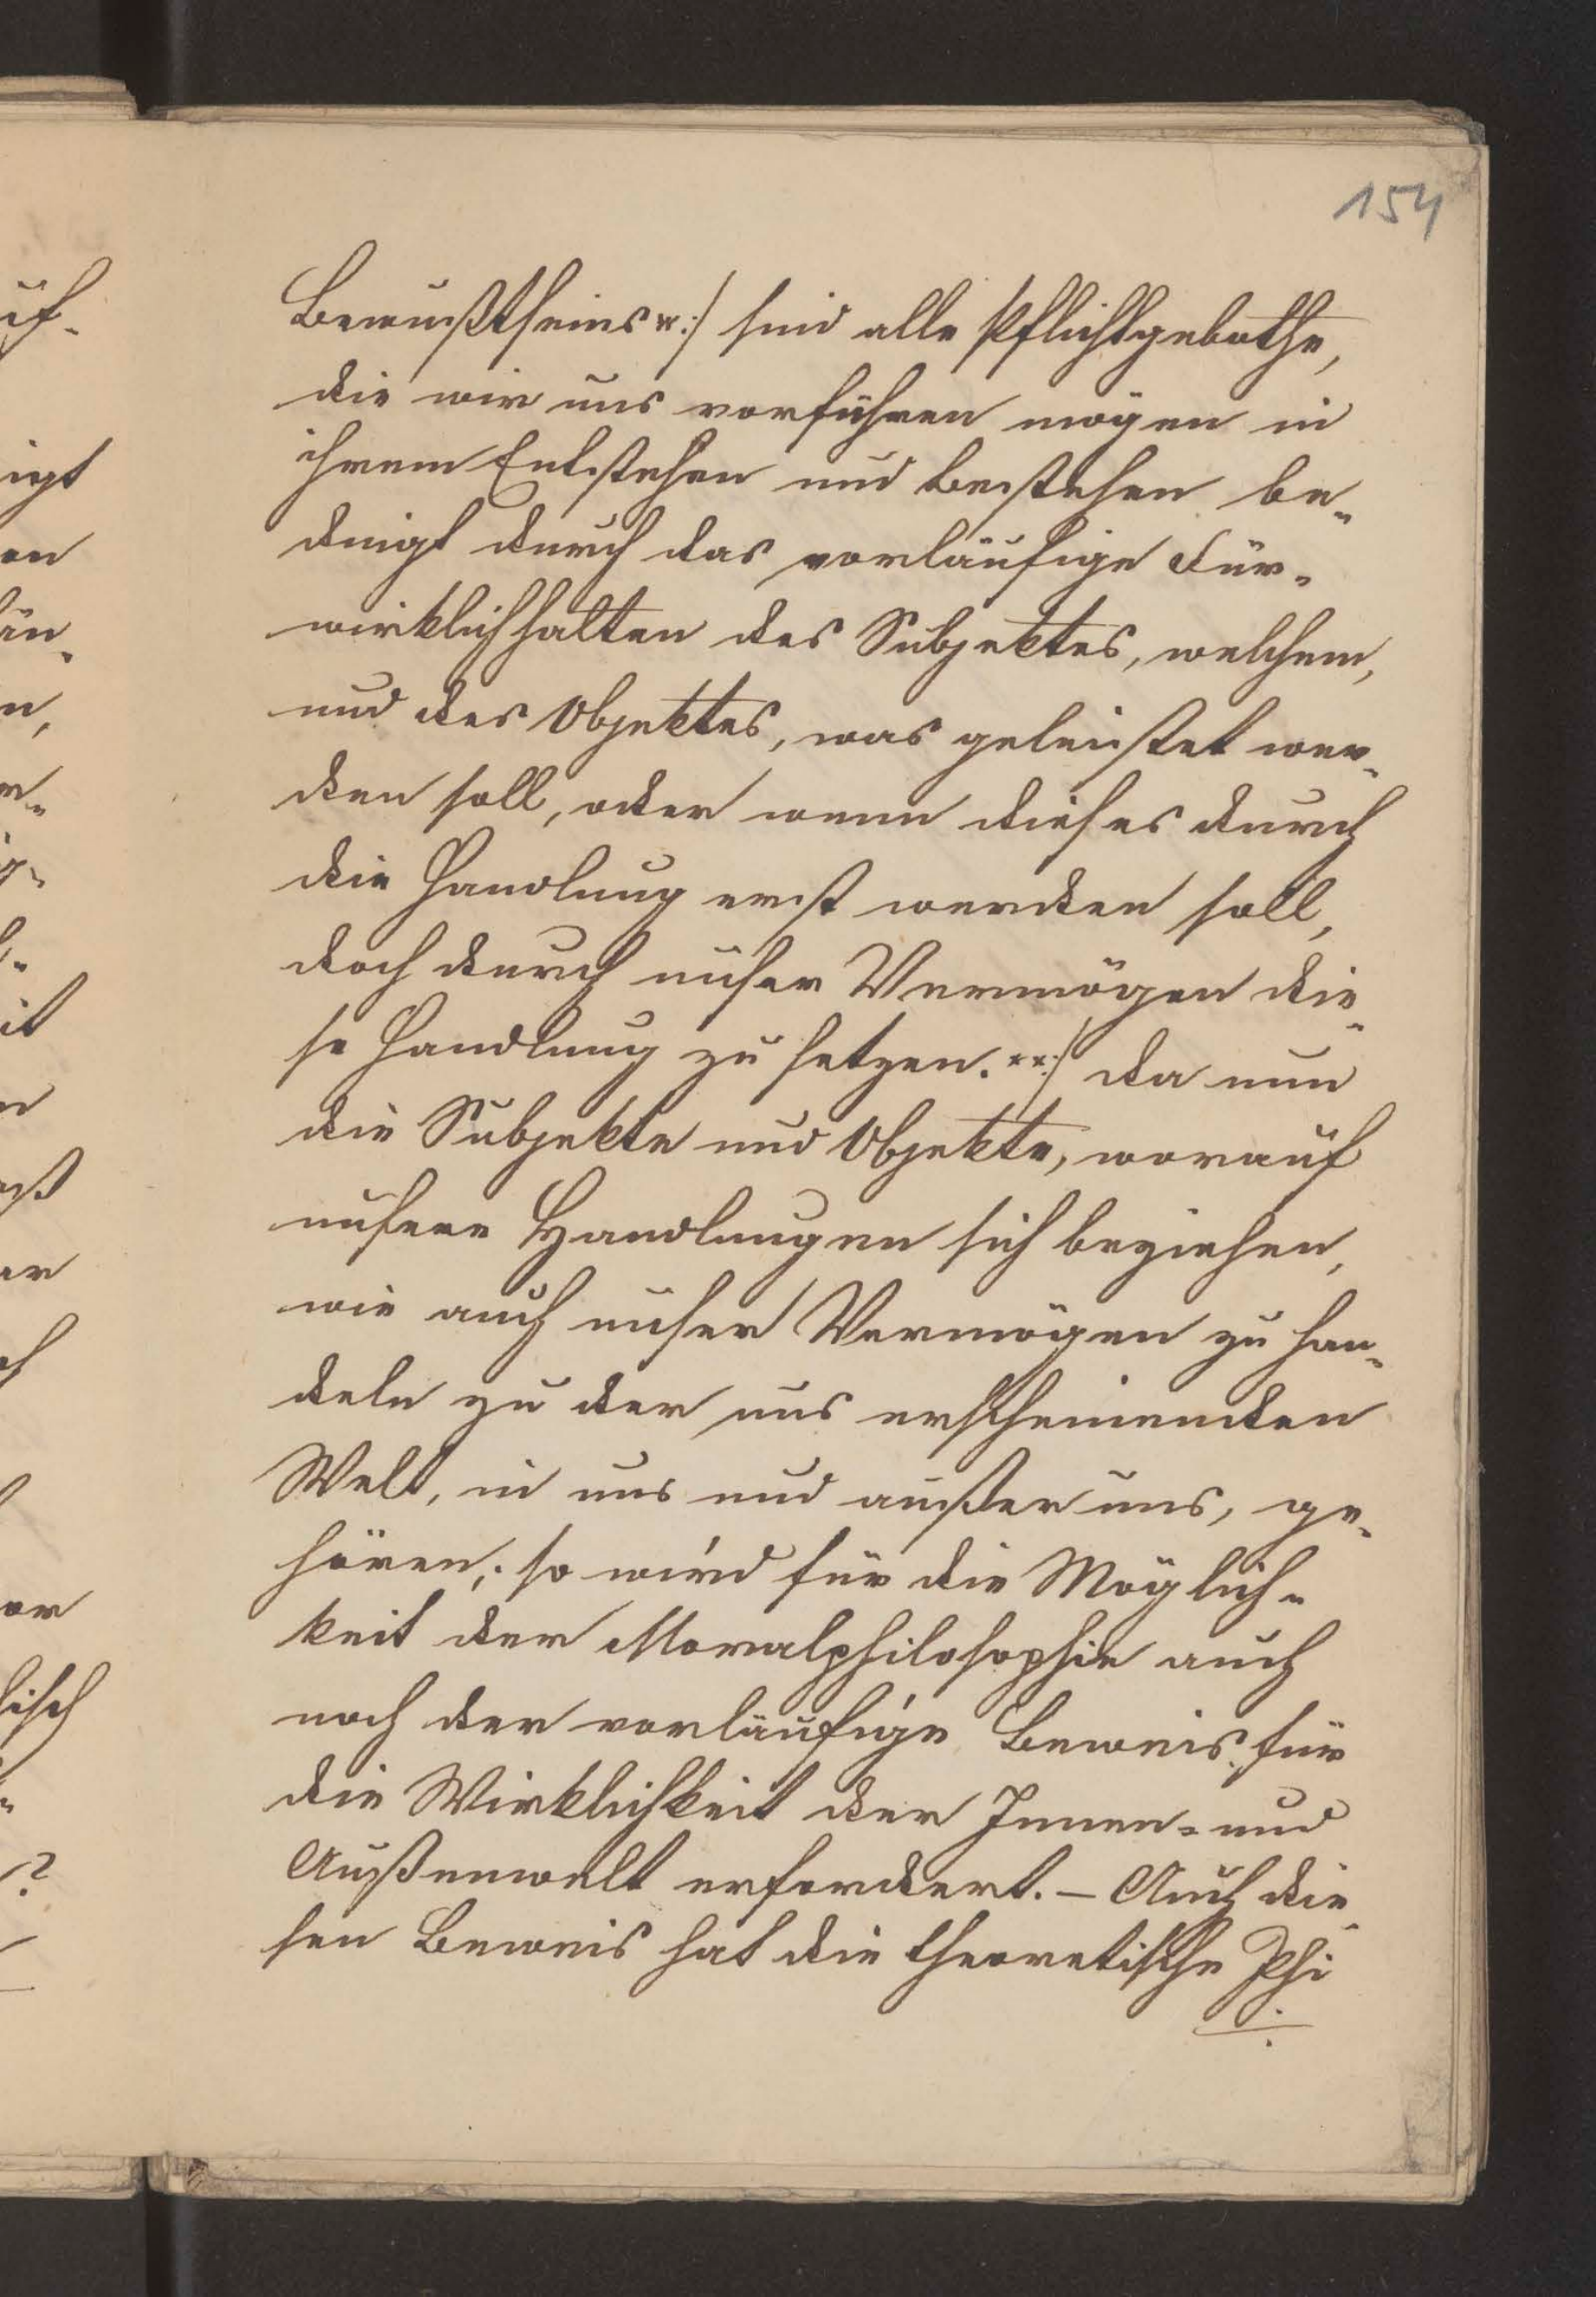 154
Bewußtseins *:/ sind alle Pflichtgebothe,
die wir uns vorführen mögen in
ihrem Entstehen und Bestehen be-
dingt durch das vorläufige Für-
wirklichhalten des Subjektes, welchem,
und des Objektes, was geleistet wer-
den soll, oder wenn dieses durch
die Handlung erst werden soll,
doch durch unser Vermögen die-
se Handlung zu setzen. **:/ da nun
die Subjekte und Objekte, worauf
unsere Handlungen sich beziehen,
wie auch unser Vermögen zu han-
deln zu der uns erscheinenden
Welt, in uns und außer uns, ge-
hören; so wird für die Möglich-
keit der Moralphilosophie auch
noch der vorläufige Beweis für
die Wirklichkeit der Innen- und
Außenwelt erfordert. – Auch die-
sen Beweis hat die theoretische Phi
uf-
igt
en
än-
n,
r-
g-
it
n
aß
er
ch
or
lisch
?